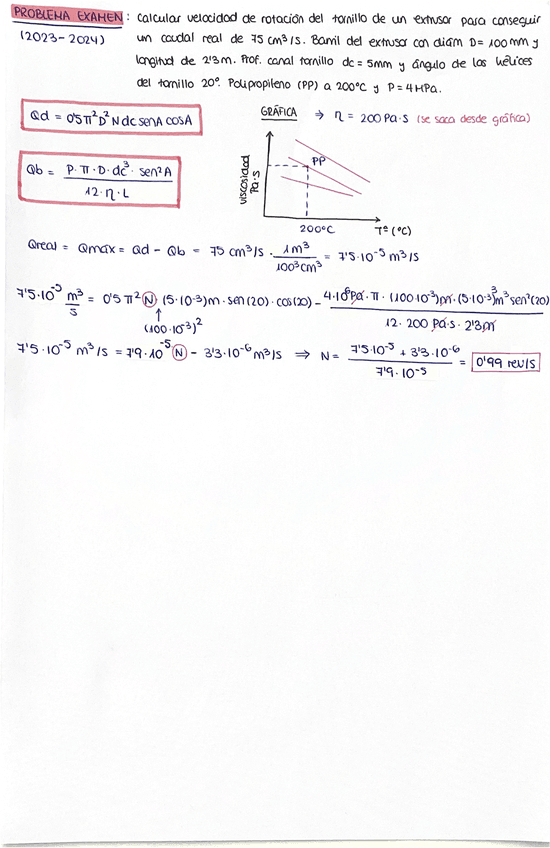 PROBLEMA EXAMEN: Calcular velocidad de rotación del tornillo de un extrusor para conseguir
(2023-2024) un caudal real de 75 cm³/s. Barril del extrusor con diám D = 100 mm y
longitud de 2'3 m. Prof. canal tornillo dc = 5mm y ángulo de las hélices
del tornillo 20º. Polipropileno (PP) a 200ºC y P = 4 MPa.
Qd = 0'5 π² D² N dc senA cosA
GRÁFICA ⇒ η = 200 Pa·s (se saca desde gráfica)
viscosidad
Pa·s
PP
200ºC
Tª (ºC)
Qb = P·π·D·dc³·sen²A / 12·η·L
Qreal = Qmáx = Qd - Qb = 75 cm³/s · 1m³ / 100³cm³ = 7'5·10⁻⁵ m³/s
7'5·10⁻⁵ m³/s = 0'5 π² N (5·10⁻³)m·sen(20)·cos(20) - 4·10⁶Pa·π·(100·10⁻³)m·(5·10⁻³)³m³ sen²(20) / 12·200 Pa·s·2'3m
(100·10⁻³)²
7'5·10⁻⁵ m³/s = 7'9·10⁻⁵ N - 3'3·10⁻⁶ m³/s ⇒ N = 7'5·10⁻⁵ + 3'3·10⁻⁶ / 7'9·10⁻⁵ = 0'99 rev/s